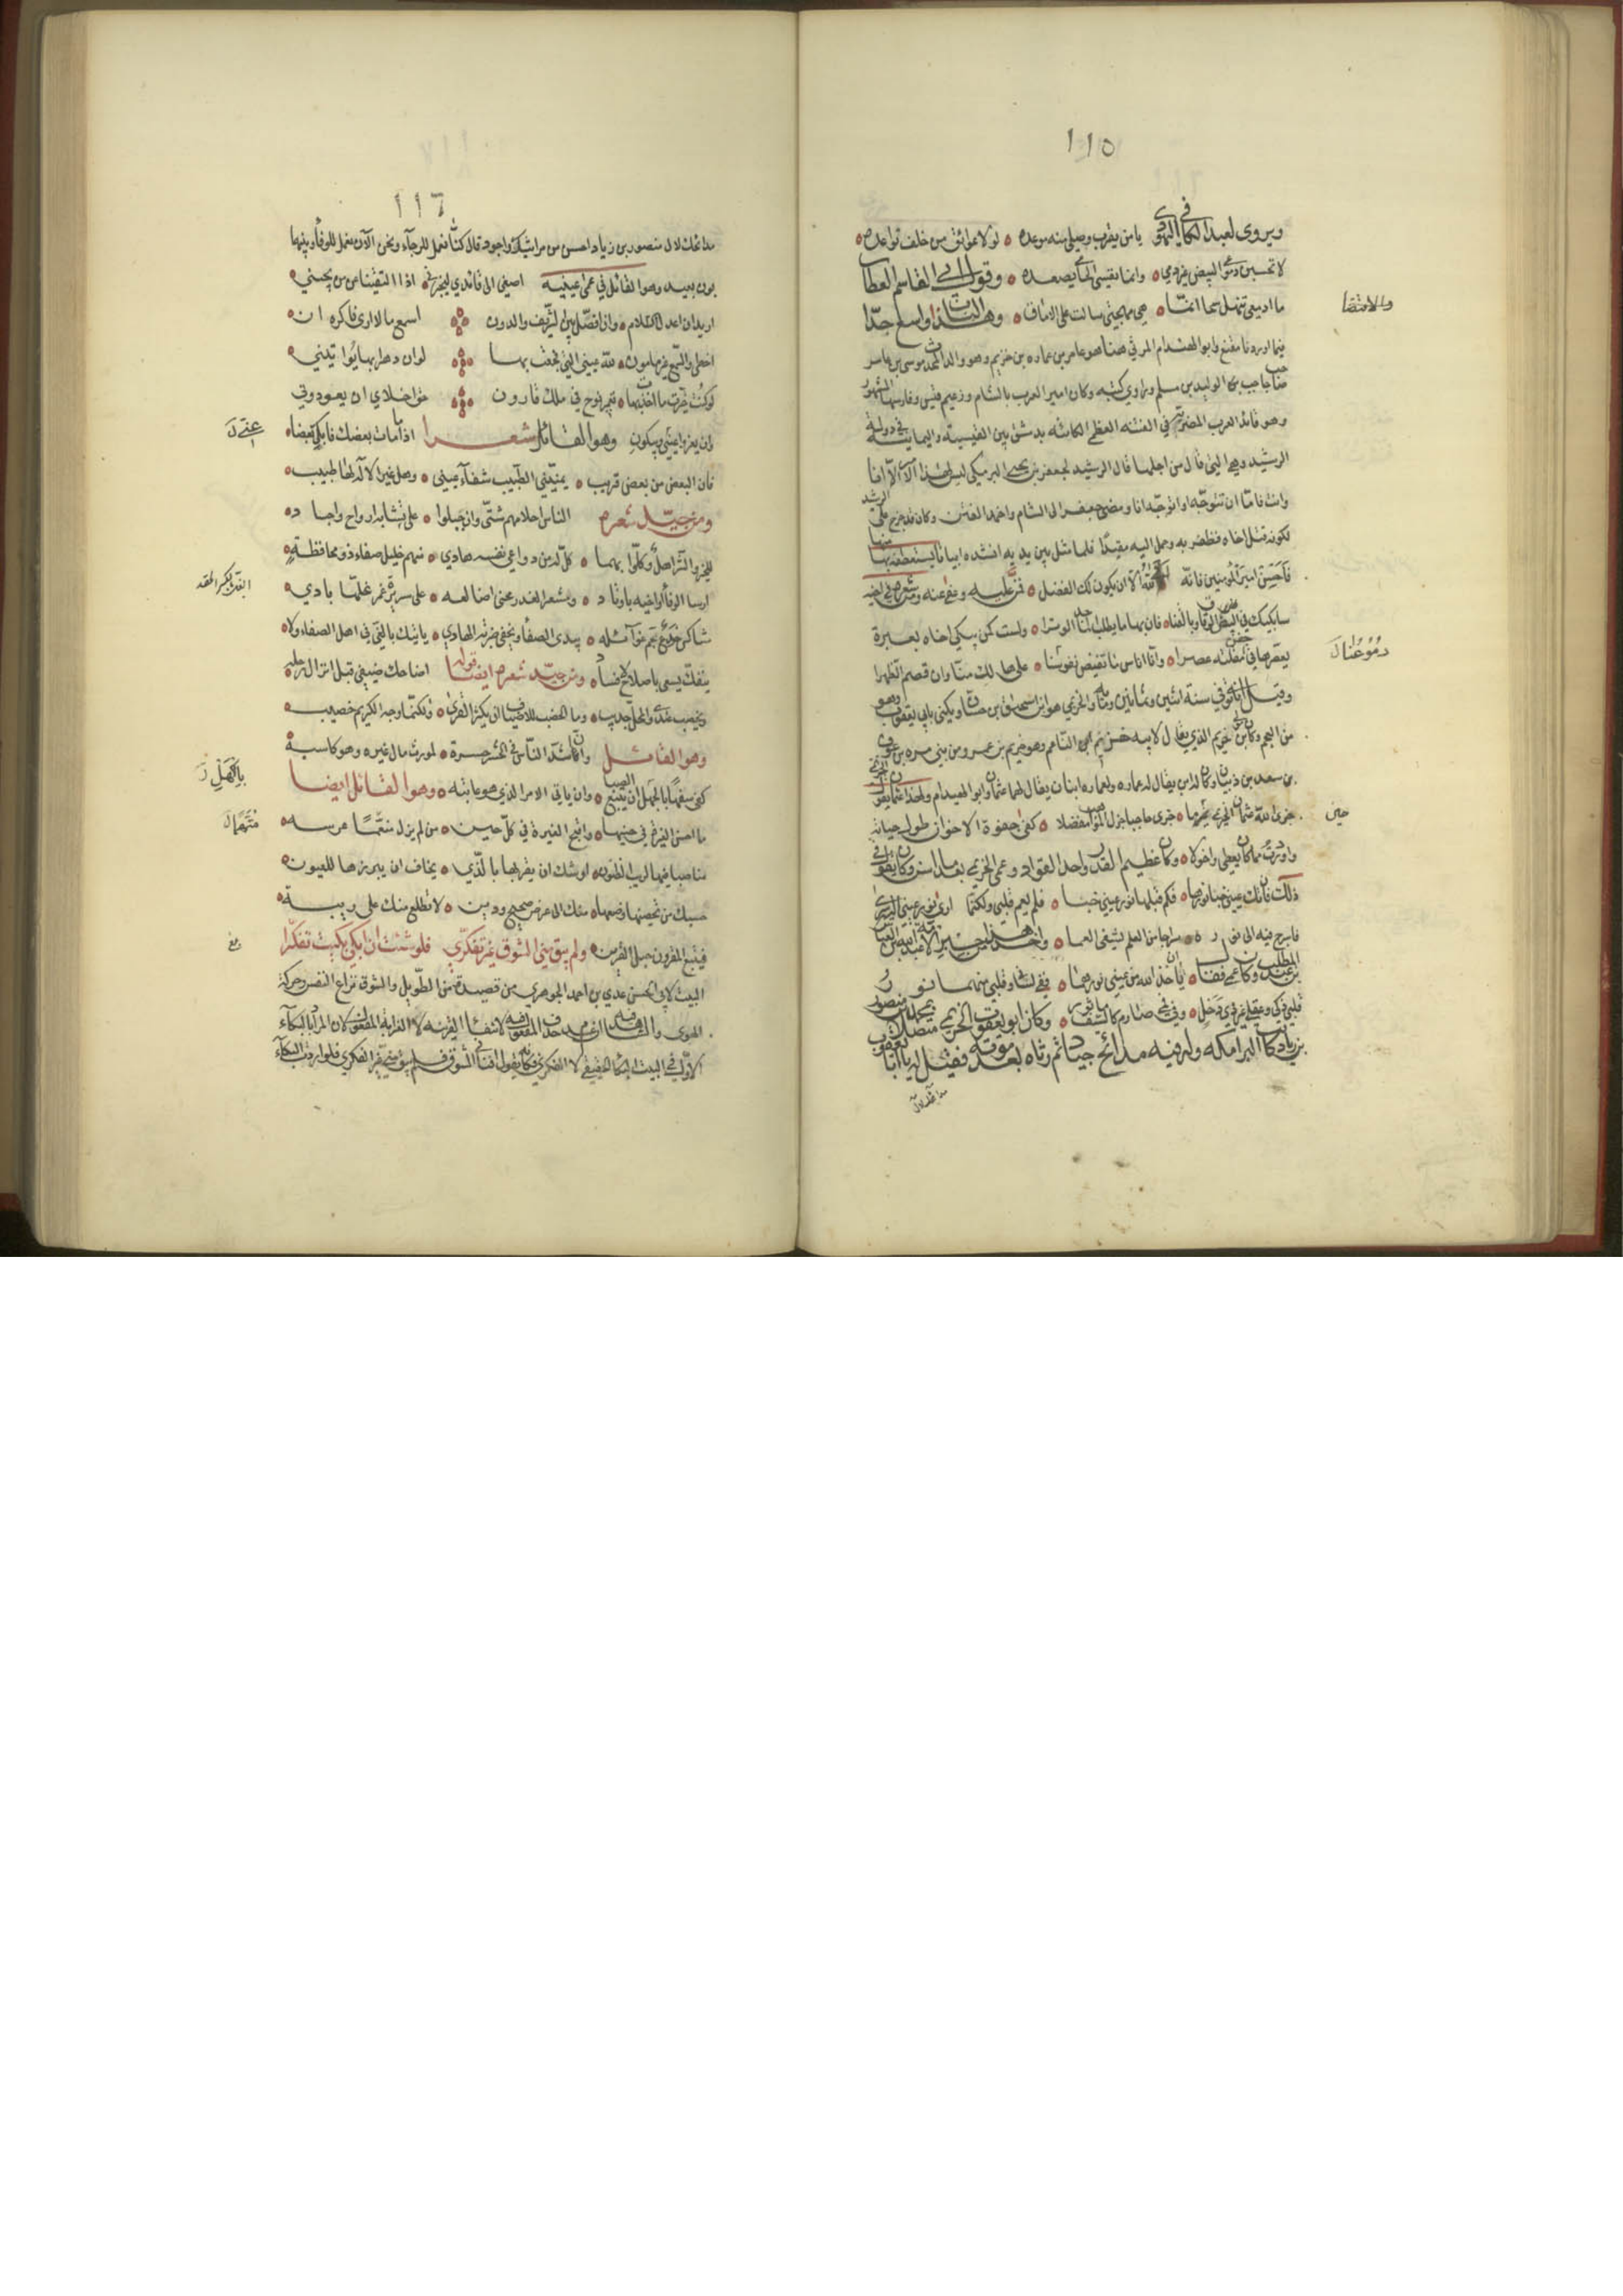 ١١٥
ويروى لعبد الله في اليهودي يا من يقرب وصلي منه موعده لولا عوائق من خلف تواعده
لا تحسبن دموعي البيض غير دمي وانما نفسي الحامي يصعده وقول ابي القاسم العطار
ما ادمعي تنهل سحا انما هي مهجتي سالت على الاماق وهذا الباب واسع جدا
فيما اوردنا مقنع وابو الهيذام المري هذا هو عامر بن عماره بن خريم وهو والد المحدث موسى بن عامر
صاحب الوليد بن مسلم وراوي كتبه وكان امير العرب بالشام وزعيم قيس وفارسها المشهور
وهو قائد العرب المضرية في الفتنه العظمى الكائنه بدمشق بين القيسية واليمانية في دولة
الرشيد وهي التي قال من اجلها قال الرشيد لجعفر بن يحيى البرمكي ليس لهذا الامر الا انا
وانت فاما ان تتوجه او اتوجه انا ومضى جعفر الى الشام واخمد الفتن وكان قد خرج على الرشيد
لكونه قتل اخاه فظفر به وحمل اليه مقيدا فلما مثل بين يديه انشده ابياتا يستعطفه بها منها
فاحسن امير المؤمنين فانه ابى الله الا ان يكون لك الفضل فمن عليه وعفى عنه ومن شعره في اخيه
سابكيك بالبيض الرقاق وبالقنا فان بها ما يطلب الماجد الوترا ولست كمن يبكي اخاه بعبرة
يعصرها في جفن مقلته عصرا وانا اناس ما تفيض نفوسنا على هالك منا وان قصم الظهرا
وقيل انه توفي في سنة اثنين وثمانين ومائة والخريمي هو ابن اسحاق بن حسان ويكنى بابي يعقوب وهو
من العجم وكان مولى ابن خريم الذي يقال لابيه خريم الناعم وهو خريم بن عمرو من بني مره بن عوف
بن سعد بن ذبيان وكان لخريم ابن يقال له عماره ولعماره ابنان يقال لهما عثمان وابو الهيذام ولهذا عثمان يقول الخريمي
جزى الله عثمان الخريمي خير ما جزى صاحبا جزل المواهب مفضلا كفى جفوة الاخوان طول حياته
واورث مما كان يعطى واخولا وكان عظيم القدر واحد القواد وعمى الخريمي بعد ما اسن وكان يقول في
ذلك فان تك عيني خبا نورها فكم قبلها نور عيني خبا فلم يعم قلبي ولكنما ارى نور عيني اليه سرى
فاسرج فيه الى نوره سراجا من العلم يشفى العما واخذ هذا من حبر الامة عبد الله بن العباس
بن عبد المطلب وكان اعمى فقال ان ياخذ الله من عيني نورهما ففي لساني وقلبي منهما نور
قلبي ذكي وعقلي غير ذي دخل وفي فمي صارم كالسيف ماثور وكان ابو يعقوب الخريمي متصلا بمحمد بن منصور
بن زياد كاتب البرامكه وله فيه مدائح جياد ثم رثاه بعد موته فقيل له يا ابا يعقوب
مدائحك لآل
والامتقا
دموعنا ل
حين
١١٦
مدائحك لآل منصور بن زياد احسن من مراثيك واجود قال كنا نعمل للرجاء ونحن الآن نعمل للوفاء وبينهما
بون بعيد وهو القائل في عمى عينيه اصغي الى قائدي ليخبرني اذا التقينا عمن يحييني
اريد ان اعدل السلام وان افصل بين الشريف والدون اسمع ما لا ارى فاكره ان
اخطي والسمع غير مامون لله عيني التي فجعت بها لو ان دهرا بها يواتيني
لو كنت خيرت ما اخذت بها تعمير نوح في ملك قارون حق اخلاي ان يعودوني
وان يعزوا عيني ويبكوني وهو القائل شعرا اذا ما مات بعضك فابك بعضا
فان البعض من بعض قريب يمنيني الطبيب شفاء عيني وهل غير الاله لها طبيب
ومن جيد شعره الناس اخلاقهم شتى وان جبلوا على تشابه ارواح واجساد
للخير والشر اهل وكلوا بهما كل له من دواعي نفسه هادي منهم خليل صفاء ذو محافظة
ارسا الوفاء اواخيه باوتاد ومشعر الغدر محني اضالعه على سريرة غمر غلها بادي
شاكس خدع جم غوائله يبدى الصفاء ويخفي ضربة الهادي ياتيك بالبغي في اهل الصفاء ولا
ينفك يسعى باصلاح لافساد ومن جيد شعره ايضا قوله اضاحك ضيفي قبل انزال رحله
ويخصب عندي والمحل جديب وما الخصب للاضياف ان يكثر القرى ولكنما وجه الكريم خصيب
وهو القائل وان اشد الناس في الحشر حسرة لمورث مال غيره وهو كاسبه
كفى سفها بالجهل ان يتبع الصبا وان ياتي الامر الذي هو عائبه وهو القائل ايضا
ما احسن الغيرة في حينها واقبح الغيرة في كل حين من لم يزل متهما عرسه
مناصبا فيها لريب الظنون اوشك ان يغريها بالذي يخاف ان يبرزها للعيون
حسبك من تحصينها وضعها منك الى عرض صحيح ودين لا تطلع منك على ريبة
فيتبع المقرون حبل القرين ولم يبق مني الشوق غير تفكري فلو شئت ان ابكي بكيت تفكرا
البيت لابي الحسن علي بن احمد الجوهري من قصيدة من الطويل والشوق نزاع النفس وحركة
الهوى والشاهد فيه حذف المفعول لانتفاء القرينة لا لغرابة المفعول لان المراد بالبكاء
الاول في البيت البكاء الحقيقي لا الفكري فكانه يقول افناني الشوق فلم يبق مني غير الفكر فلو اردت البكاء
بالكهل ن
متهما ل